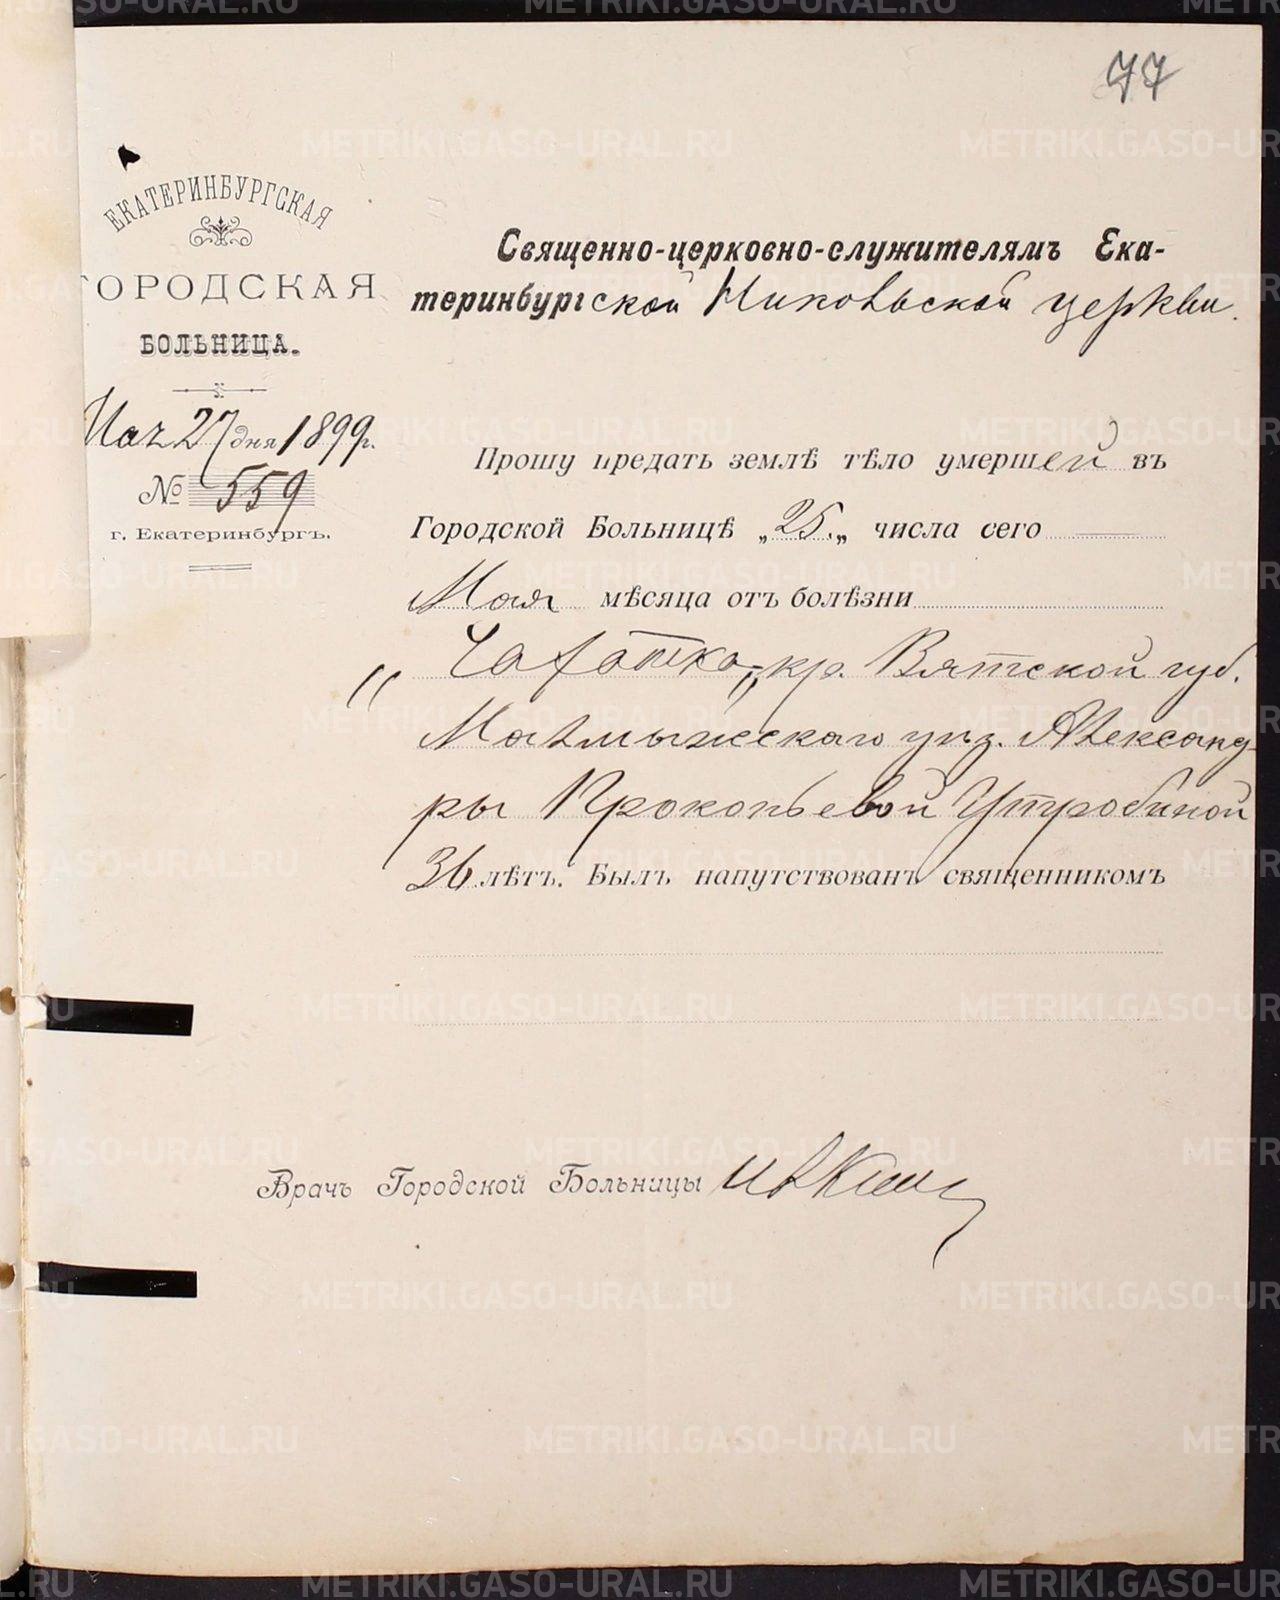 77
ЕКАТЕРИНБУРГСКАЯ
ГОРОДСКАЯ
БОЛЬНИЦА.
Мая 27 дня 1899 г.
№ 559
г. Екатеринбургъ.
Священно-церковно-служителямъ Ека-
теринбургской Никольской церкви.
Прошу предать землѣ тѣло умершей въ
Городской Больницѣ „25„ числа сего
Мая мѣсяца отъ болѣзни
"Чахотка," кр. Вятской губ.
Малмыжскаго уѣз. Александ-
ры Прокопьевой Утробиной
36 лѣтъ. Былъ напутствованъ священникомъ
Врачъ Городской Больницы
METRIKI.GASO-URAL.RU